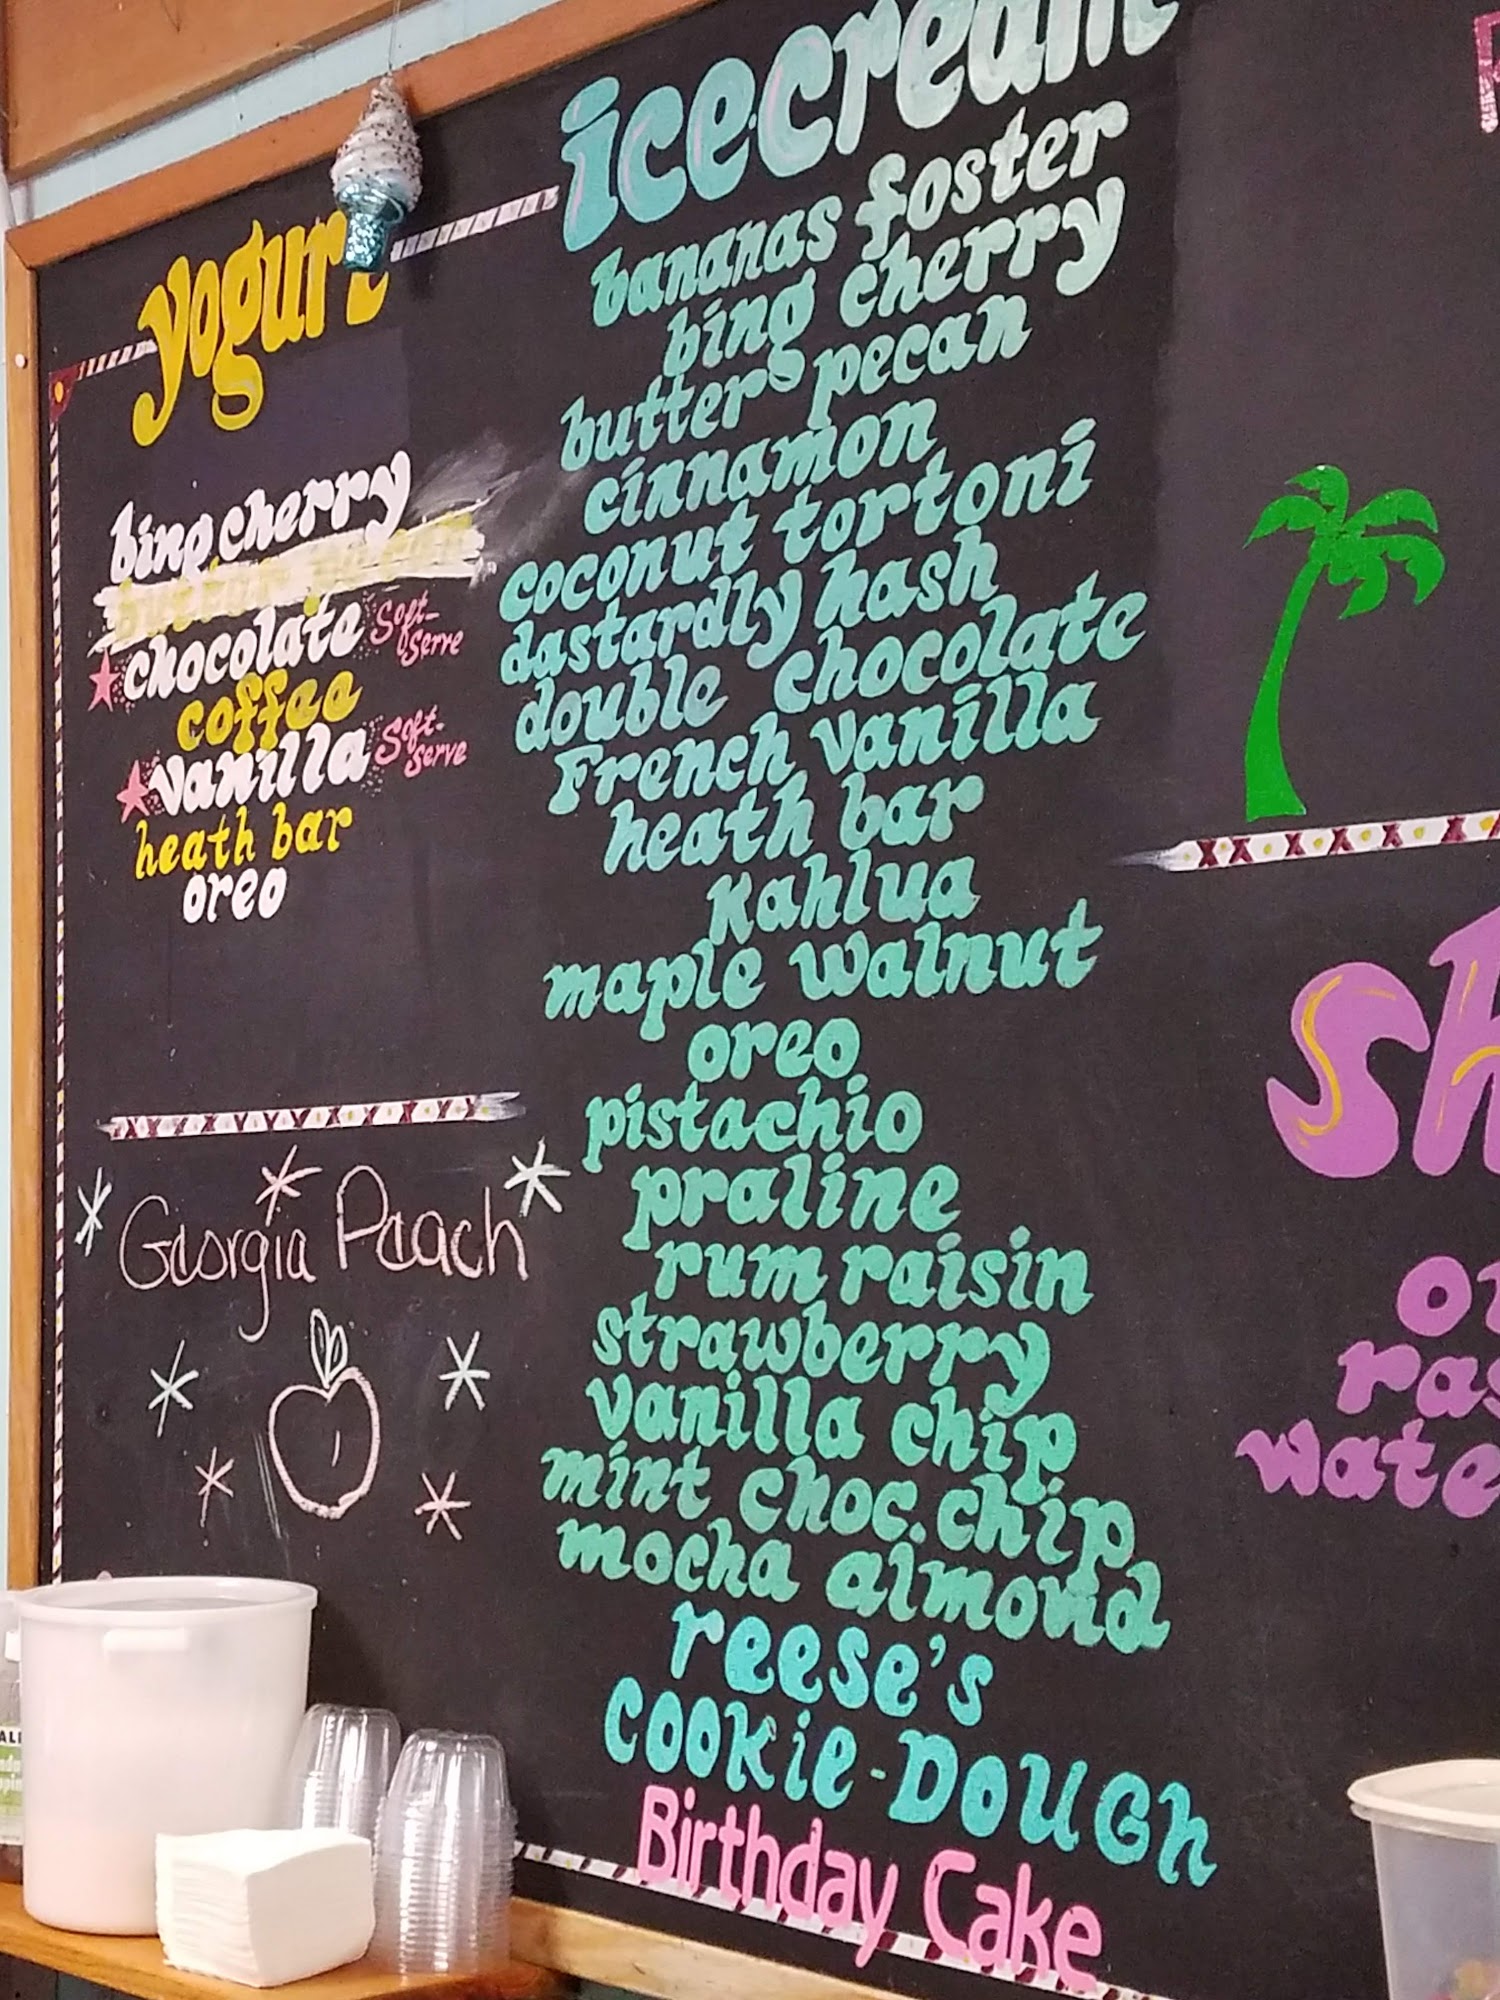 yogurt
bing cherry
chocolate Soft-Serve
coffee
vanilla Soft-Serve
heath bar
oreo
Georgia Peach
icecream
bananas foster
bing cherry
butter pecan
cinnamon
coconut tortoni
dastardly hash
double chocolate
French vanilla
heath bar
Kahlua
maple walnut
oreo
pistachio
praline
rum raisin
strawberry
vanilla chip
mint choc. chip
mocha almond
reese's
COOKie-DOUGh
Birthday Cake